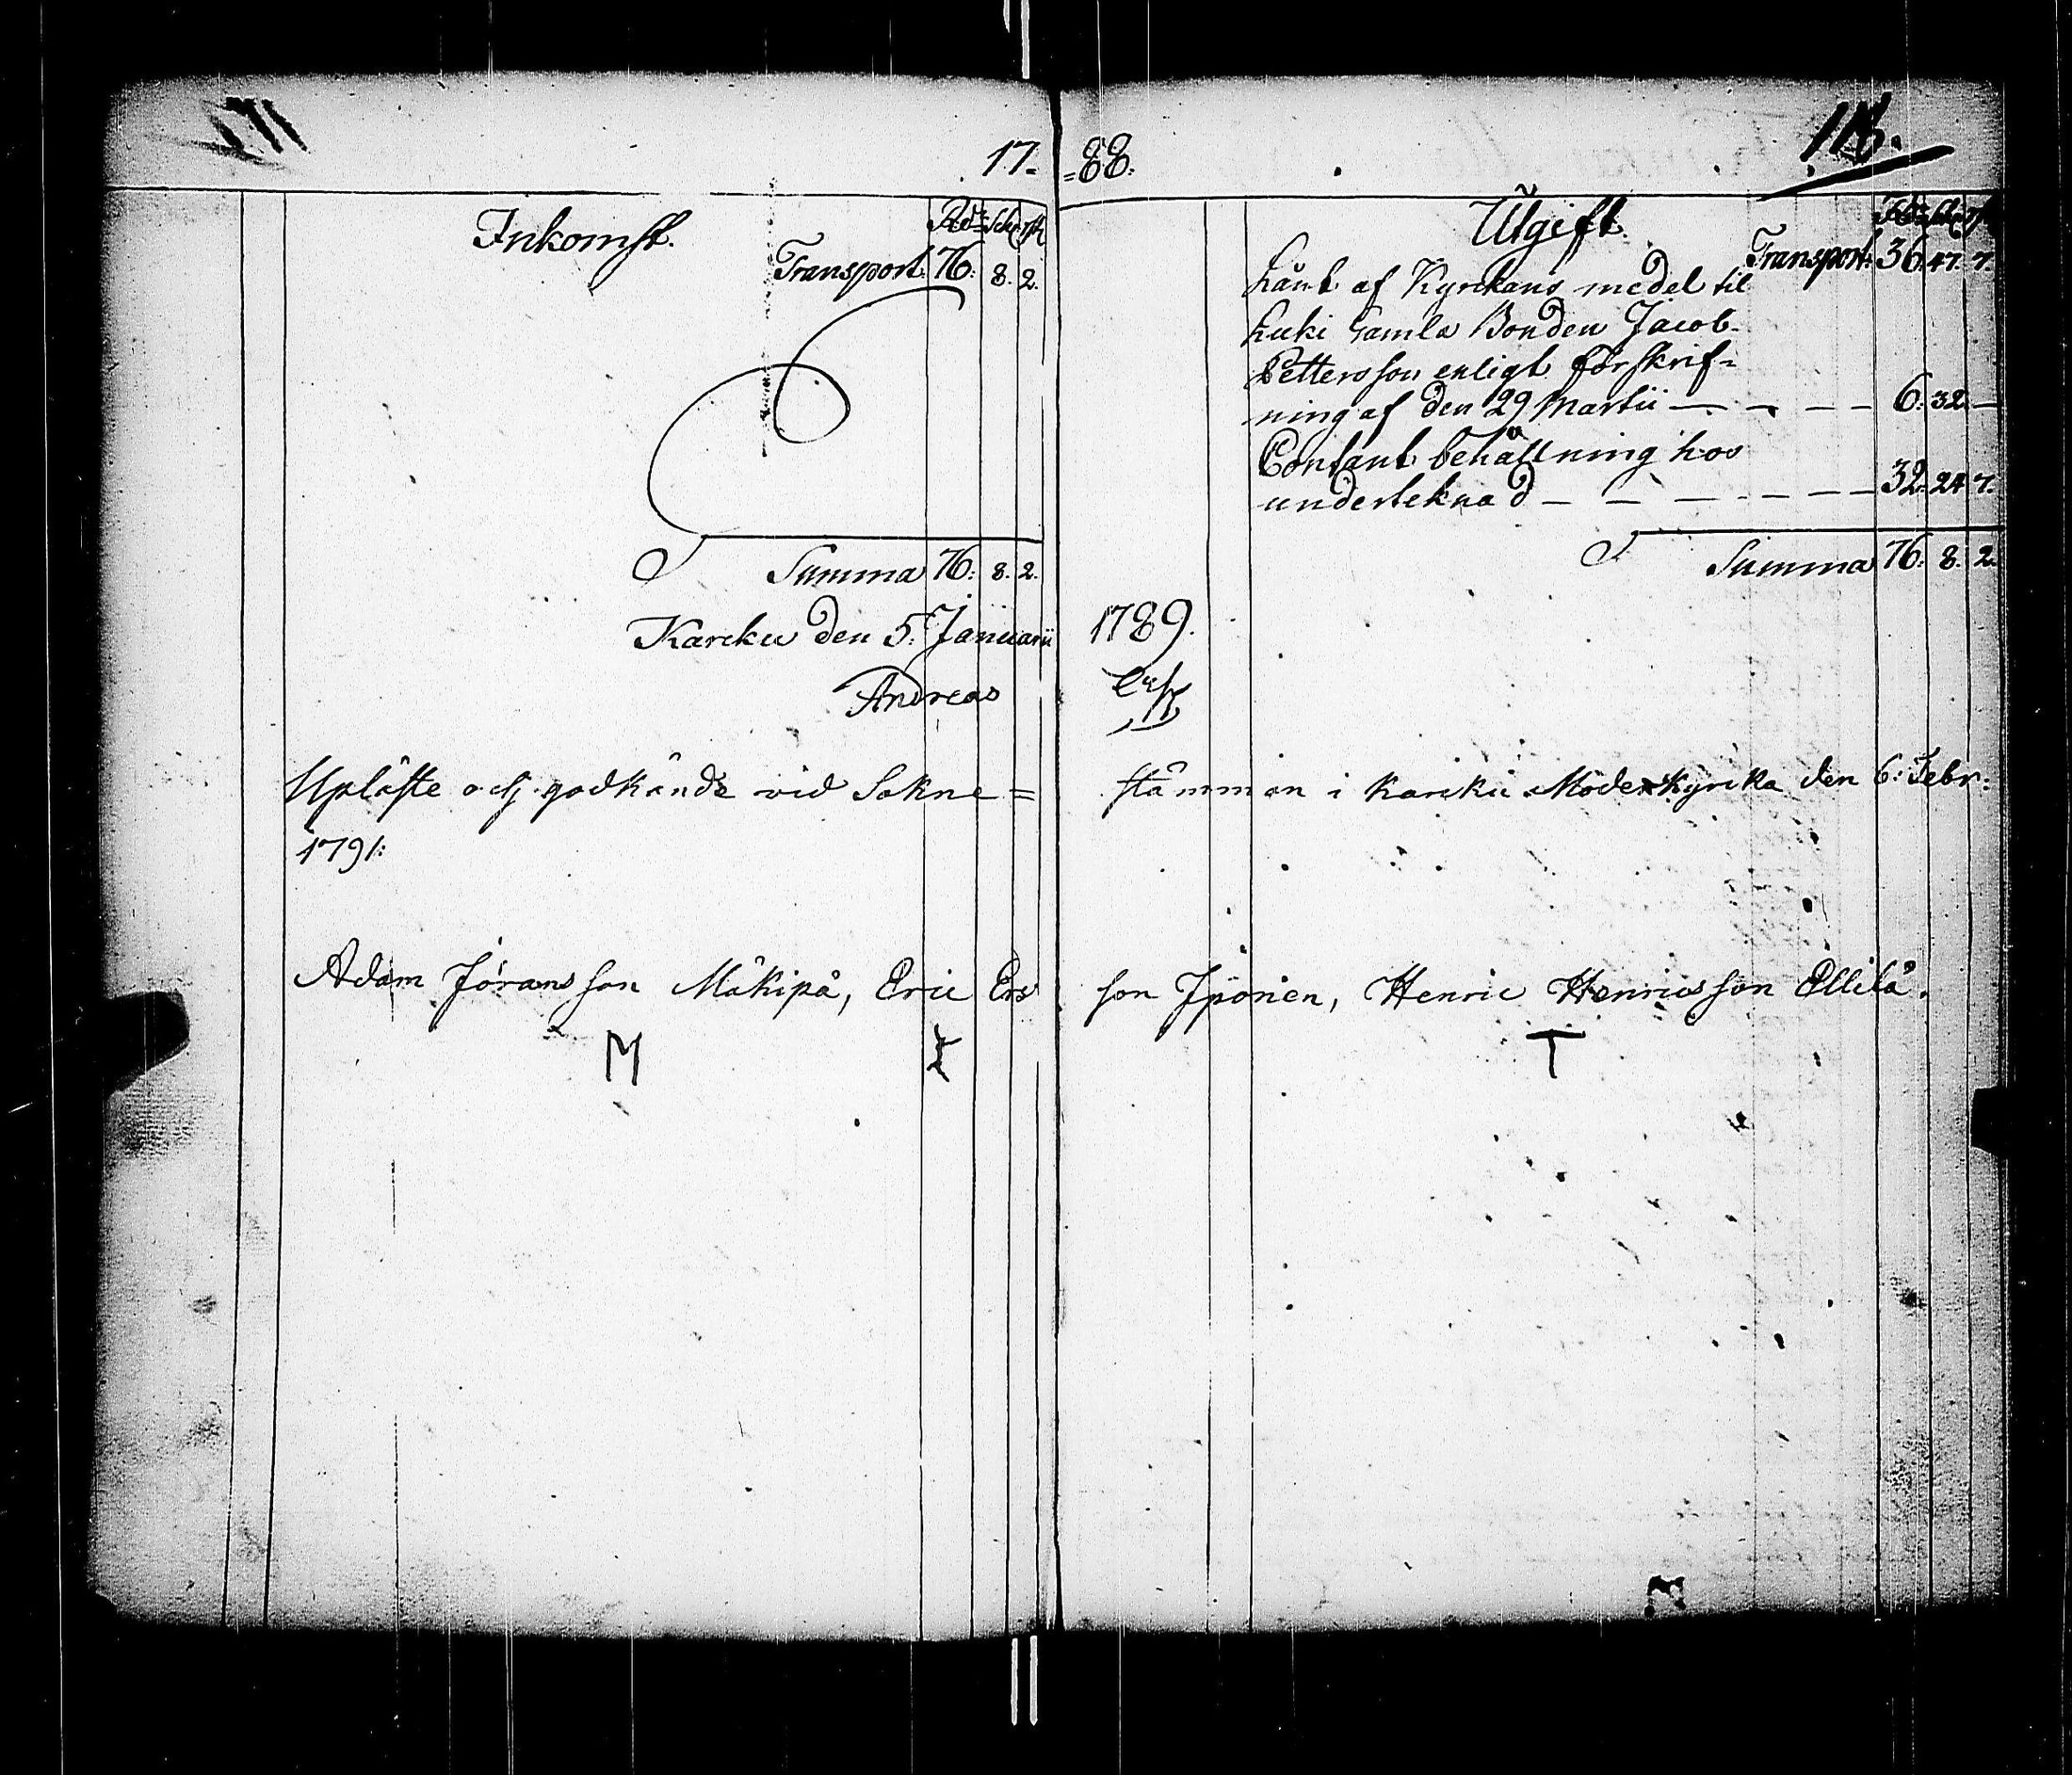 17=
=88.
118.
Inkomst. Rdr Sch rst
Transport 76. 8. 2.
Summa 76: 8. 2.
Utgift.
Transport: 36. 47. 7.
Lånt af Kyrkans medel til
Luki Gamla Bonden Jacob
Pettersson enligt förskrif=
ning af den 29 Martii — — — — 6. 32. —
Contant behållning hos
underteknad — — — — — — — 32. 24 7.
Summa 76. 8. 2.
Karcku den 5. Januarii 1789.
Andreas
Upläste och godkände vid Sokne= stämman i Karcku Moderkyrka den 6: Febr:
1791:
Adam Jöransson Mäkipä, Eric Ers son Iponen, Henric Henricsson Ellilä.
M T